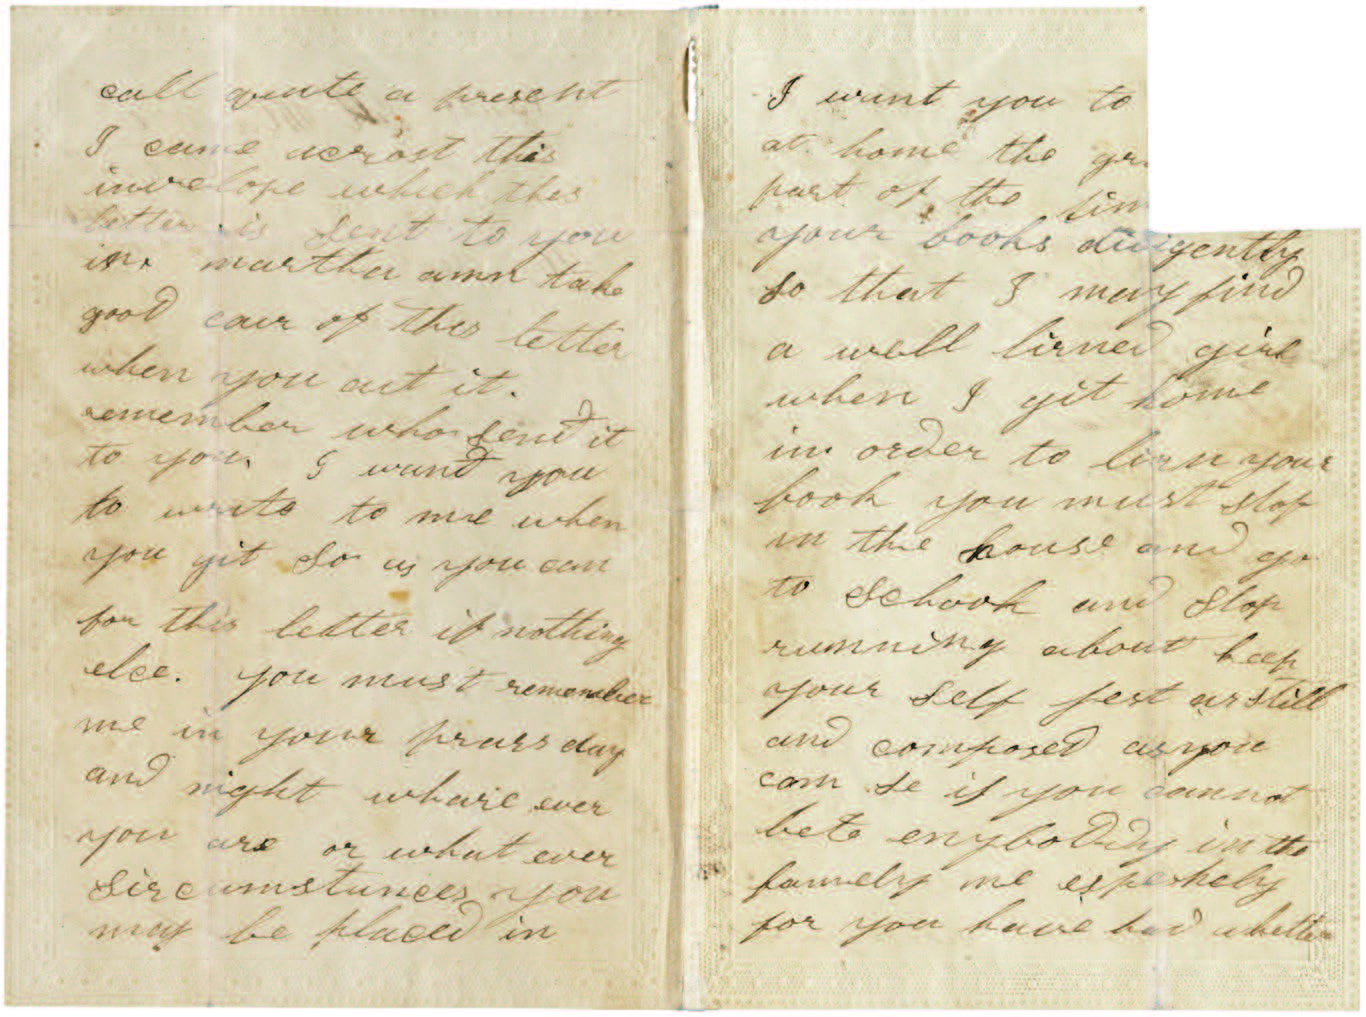 call quite a present
I came acrost this
invelope which this
letter is sent to you
in. marther ann take
good cair of this letter
when you git it.
remember who send it
to you. I wand you
to write to me when
you git so as you can
for this letter if nothing
else. you must remember
me in your prars day
and night whaire ever
you are or what ever
Sircumstances you
may be placed in
I want you to
at home the gr
part of the tim
your books diligently
so that I may find
a well lirned girl
when I git home
in order to lirn your
book you must stop
in the house and go
to School and stop
running about keep
your self jest as still
and composed as you
can se if you cannot
bete enybodddy in the
famely me espeshely
for you have had